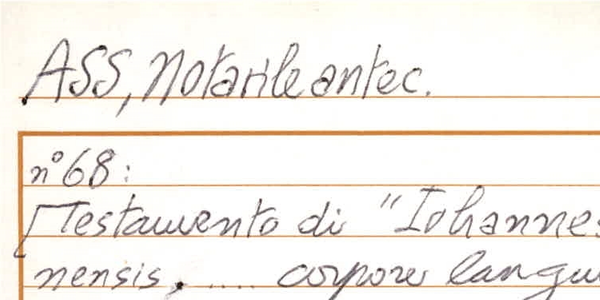 ASS, Notarile antec.
n° 68:
[Testamento di "Iohannes
nensis, .... corpore langu